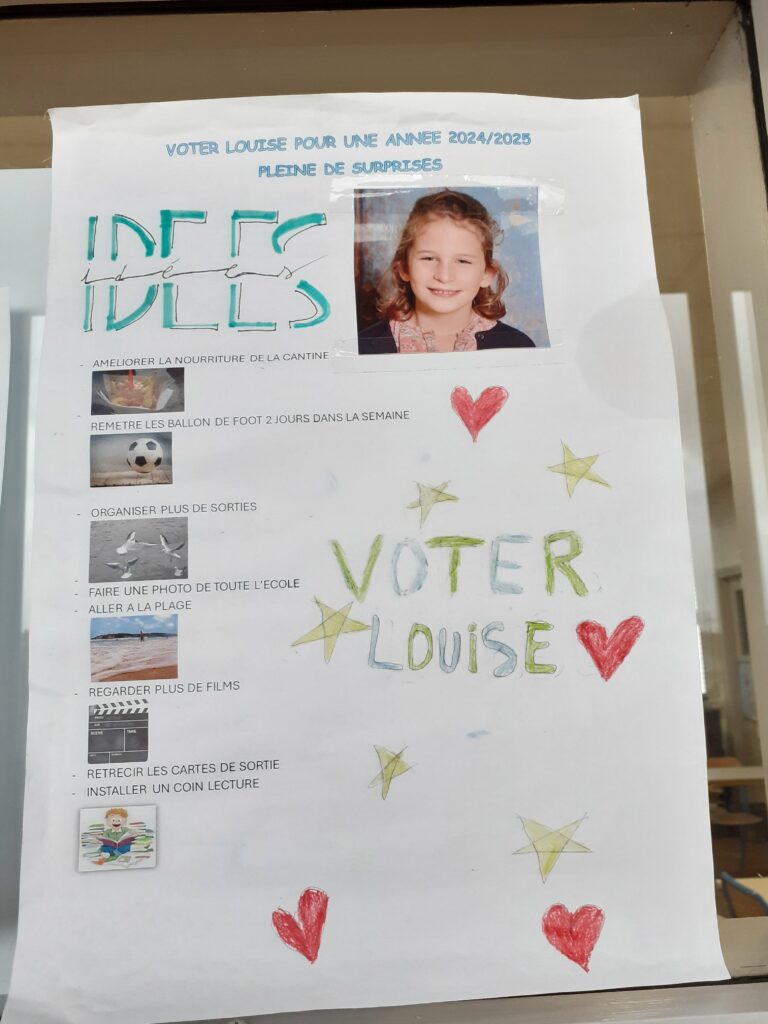 VOTER LOUISE POUR UNE ANNEE 2024/2025
PLEINE DE SURPRISES
IDEES
idées
- AMELIORER LA NOURRITURE DE LA CANTINE
- REMETRE LES BALLON DE FOOT 2 JOURS DANS LA SEMAINE
- ORGANISER PLUS DE SORTIES
- FAIRE UNE PHOTO DE TOUTE L'ECOLE
- ALLER A LA PLAGE
- REGARDER PLUS DE FILMS
SCENE TAKE
- RETRECIR LES CARTES DE SORTIE
- INSTALLER UN COIN LECTURE
VOTER
LOUISE